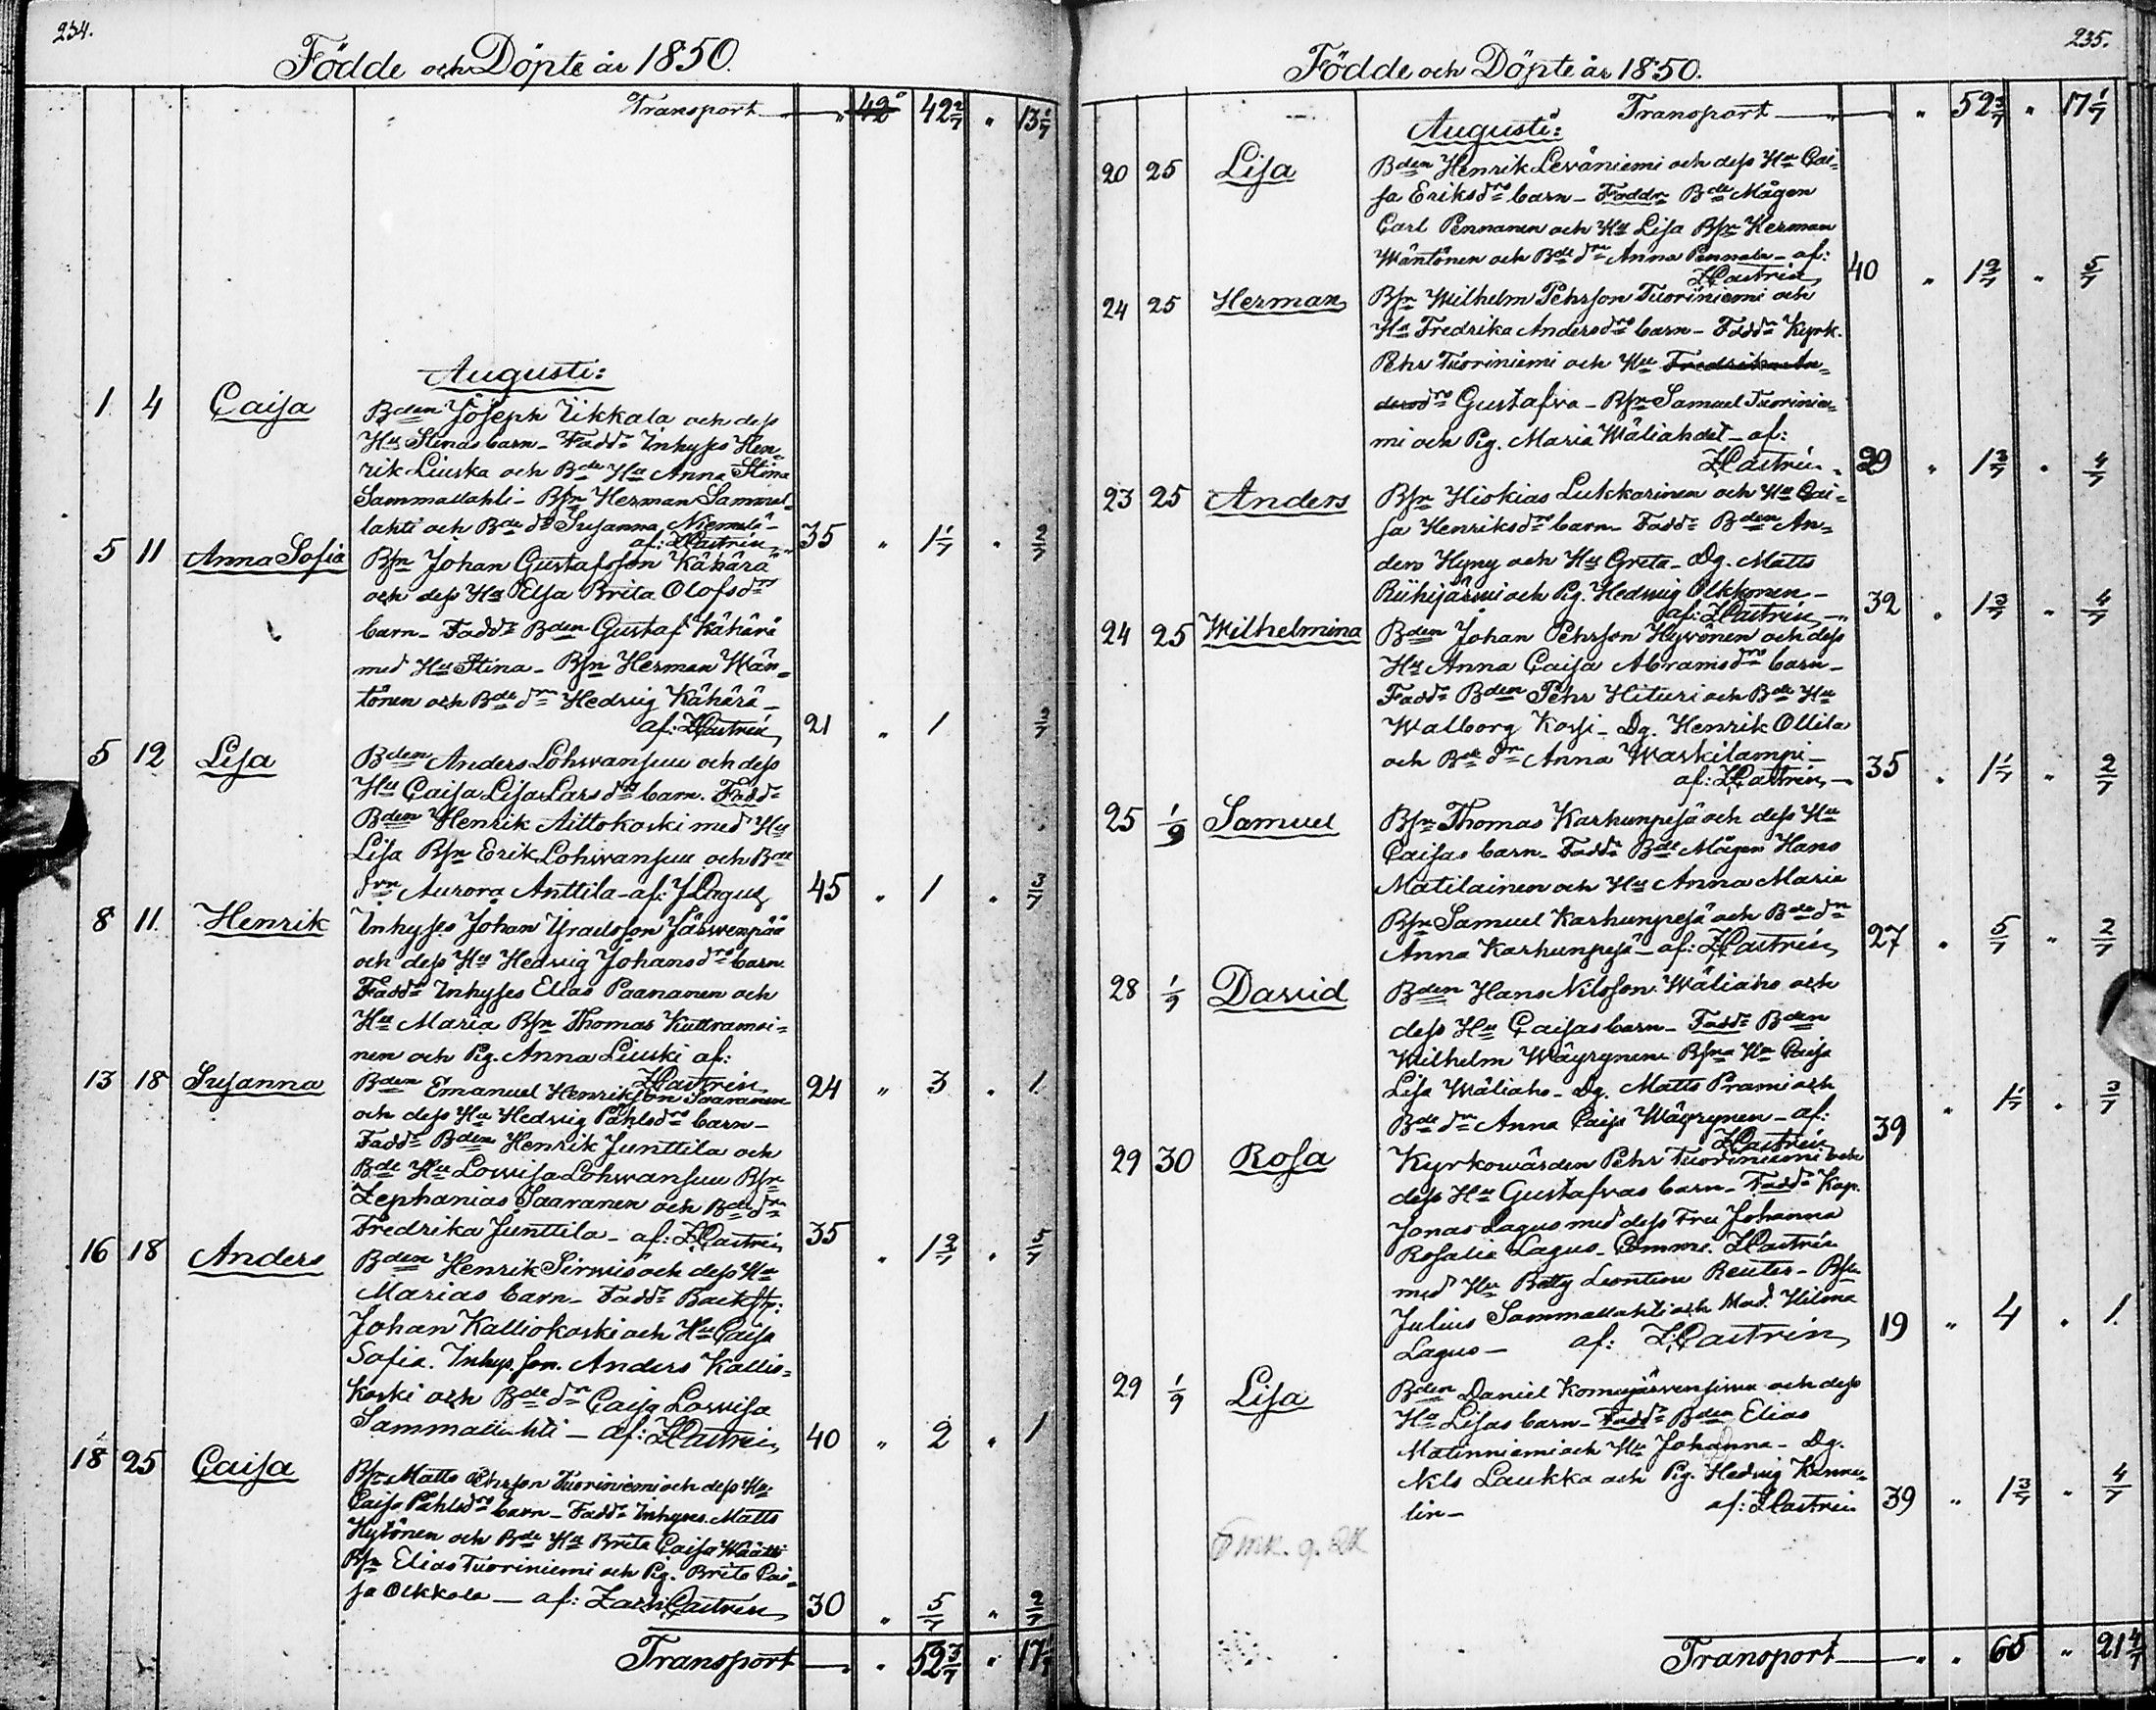 234.
Födde och Döpte år 1850.
Transport — „ 42 42 2/7 „ 13 1/7
Augusti:
1 4 Caisa Bden Joseph Ukkala och dess
Hu Stinas barn – Fadd. Inhyses Hen-
rik Liuska och Bde Hu Anna Stina
Sammallahti – Bsn Herman Sammal-
lahti och Bde dr Susanna Niemelä –
af: ZCastrén „ 35 „ 1 1/7 „ 2/7
5 11 Anna Sofia Bsn Johan Gustafsson Kähärä
och dess Hu Elsa Brita Olofsdrs
barn – Fadd. Bden Gustaf Kähärä
med Hu Stina – Bsn Herman Wän-
tönen och Bde dr Hedvig Kähärä –
af: ZCastrén 21 „ 1
5 12 Lisa Bden Anders Lohwansuu och dess
Hu Caisa Lisa Lars drs barn. Fadd.
Bden Henrik Aittokoski med Hu
Lisa Bsn Erik Lohwansuu och Bde
drn Aurora Anttila – af: JLagus 45 „ 1 „
8 11 Henrik Inhyses Johan Israelsson Järwenpää
och dess Hu Hedvig Johansdrs barn
Fadd. Inhyses Elias Paananen och
Hu Maria Bsn Thomas
nen och Pig. Anna Liuski af:
ZCastrén 24 „ 3 „ 1
13 18 Susanna Bden Emanuel Henriksson Saaranen
och dess Hu Hedvig Påhlsdrs barn –
Fadd. Bden Henrik Junttila och
Bde Hu Lowisa Lohwansuu Bsn
Zephanias Saaranen och Bde dr
Fredrika Junttila – af: ZCastrén 35 „ 1 2/7 „
16 18 Anders Bden Henrik Sirwiö och dess Hu
Marias barn – Fadd. Backstr:
Johan Kalliokoski och Hu Caisa
Sofia. Inhys. son. Anders Kallio-
koski och Bde dr Caisa Lowisa
Sammallahti – af: ZCastrén 40 „ 2 „ 1
18 25 Caisa Bsn Matts Pehrson Tuoriniemi och dess Hu
Caisa Påhlsdrs barn – Fadd. Inhyses Matts
Hytönen och Bde Hu Brita Caisa Wäätti
Bsn Elias Tuoriniemi och Pig. Brita Cai-
sa Olkkola – af: Zach:Castrén 30 „ 5/7 „ 2/7
Transport — „ 52 3/7 „ 17 1/7
235.
Födde och Döpte år 1850.
Transport — „ 52 3/7 „ 17 1/7
Augusti:
20 25 Lisa Bden Henrik Leväniemi och dess Hu Cai-
sa Eriksdrs barn – Faddr Bde Mågen
Carl Pennanen och Hu Lisa Bsn Herman
Wäntönen och Bde dr Anna Pennala – af:
ZCastrén 40 „ 1 2/7 „ 5/7
24 25 Herman Bsn Wilhelm Pehrson Tuoriniemi och
Hu Fredrika Andersdrs barn – Fadd. Kyrk.
Pehr Tuoriniemi och Hu Fredrika An-
dersdrs Gustafva – Bsn Samuel Tuorinie-
mi och Pig. Maria Wäliahdet – af:
ZCastrén „ 29 „ 1 3/7 „ 4/7
23 25 Anders Bsn Hiskias Lukkarinen och Hu Cai-
sa Henriksdrs barn – Fadd. Bden An-
ders Hyny och Hu Greta – Dg. Matts
Riihijärwi och Pig. Hedwig Olkkonen –
af: ZCastrén „ 32 „ 1 3/7 „ 4/7
24 25 Wilhelmina Bden Johan Pehrson Hyvönen och dess
Hu Anna Caisa Abramsdrs barn –
Fadd. Bden Pehr Hituri och Bde Hu
Walborg Kossi – Dg. Henrik Ollila
och Bde dr Anna Waskilampi –
af: ZCastrén – 35 „ 1 1/7 „ 2/7
25 1/9 Samuel Bsn Thomas Karhunpesä och dess Hu
Caisas barn – Fadd. Bde Mågen Hans
Matilainen och Hu Anna Maria
Bsn Samuel Karhunpesä och Bde dr
Anna Karhunpesä – af: ZCastrén 27 „ 5/7 „ 2/7
28 1/9 David Bden Hans Nilsson Wäliaho och
dess Hu Caisas barn – Fadd. Bden
Wilhelm Wäyrynen Bsns Hu Caisa
Lisa Wäliaho – Dg. Matts Prami och
Bde dr Anna Caisa Wäyrynen – af:
ZCastrén 39 „ 1 1/7 „ 3/7
29 30 Rosa Kyrkowärden Pehr Tuoriniemi och
dess Hu Gustafvas barn – Fadd. Kap.
Jonas Lagus med dess Fru Johanna
Rosalie Lagus – Comm. ZCastrén
med Hu Betty Leontine Reuter – Bsn
Julius Sammallahti och Mad. Hilma
Lagus – af: Z:Castrén 19 „ 4 „ 1.
29 1/9 Lisa Bden Daniel Komujärwensuu och dess
Hu Lisas barn – Fadd. Bden Elias
Matinniemi och Hu Johanna – Dg.
Nils Laukka och Pig. Hedvig
lin – af: ZCastrén 39 „ 1 3/7 „ 4/7
Transport — „ „ 65 „ 21 4/7